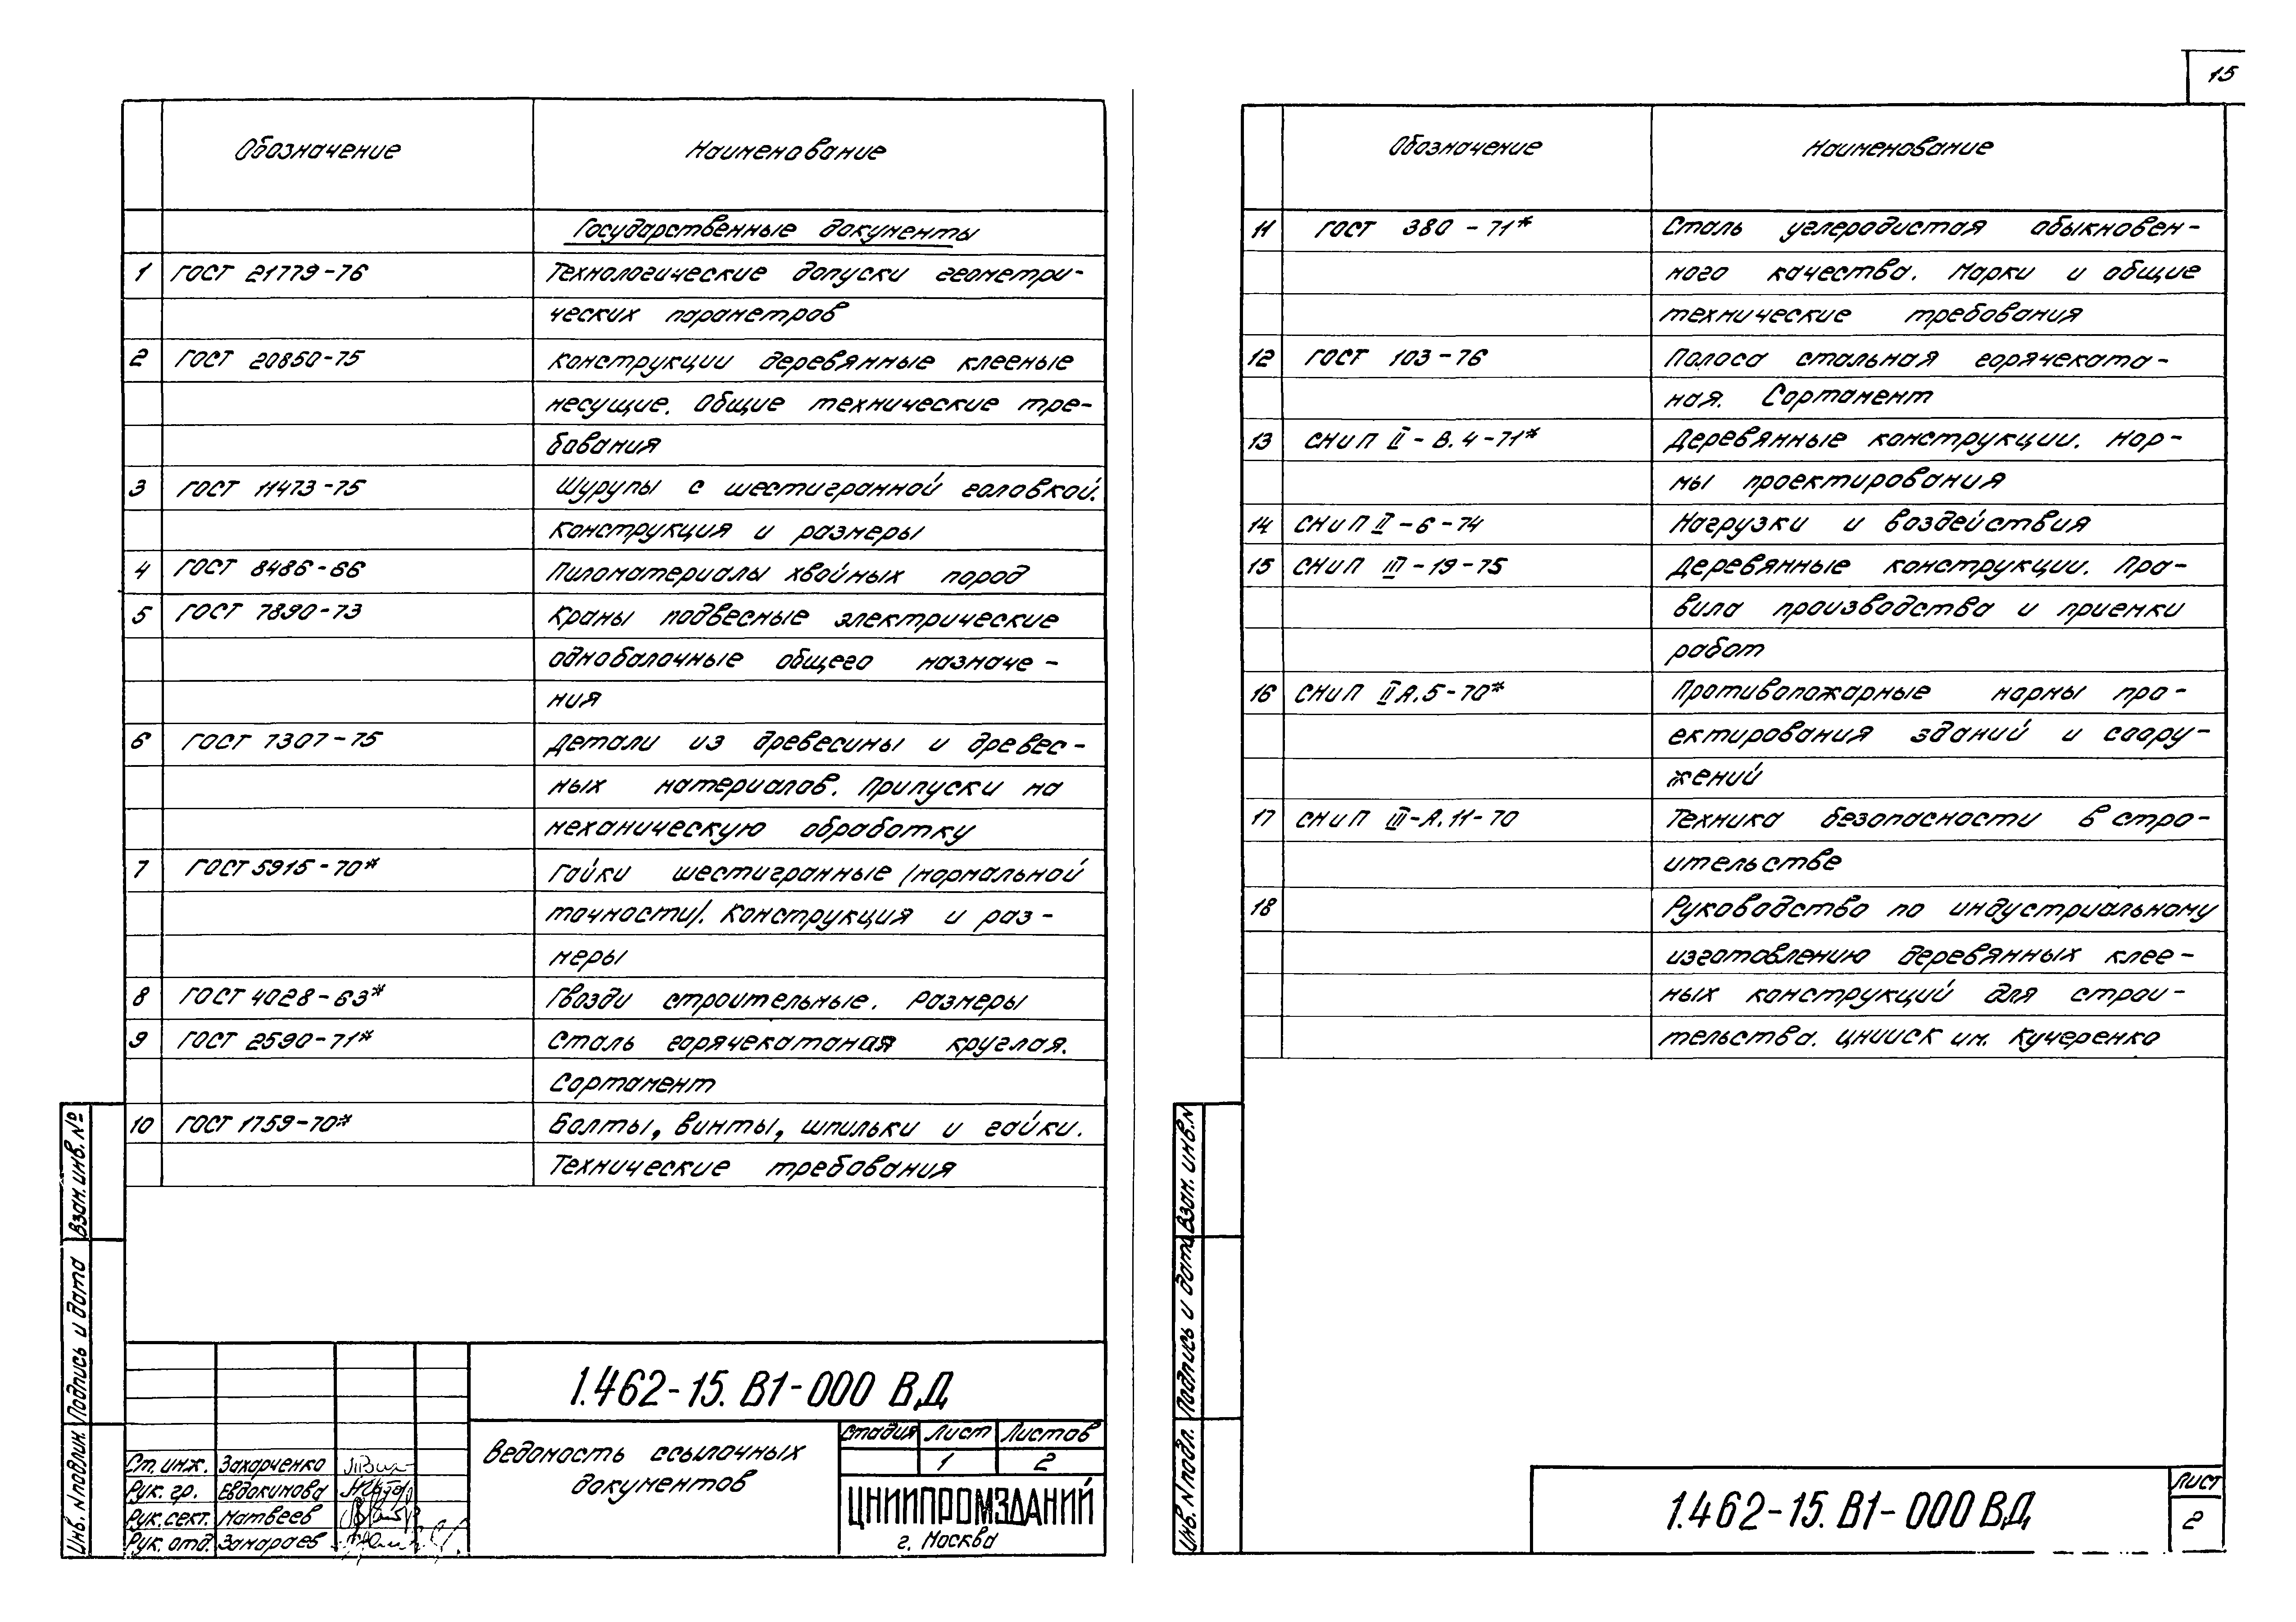 15
Обозначение Наименование
Государственные документы
1 ГОСТ 21779-76 Технологические допуски геометри-
ческих параметров
2 ГОСТ 20850-75 Конструкции деревянные клееные
несущие. Общие технические тре-
бования
3 ГОСТ 11473-75 Шурупы с шестигранной головкой.
Конструкция и размеры
4 ГОСТ 8486-66 Пиломатериалы хвойных пород
5 ГОСТ 7890-73 Краны подвесные электрические
однобалочные общего назначе-
ния
6 ГОСТ 7307-75 Детали из древесины и древес-
ных материалов. Припуски на
механическую обработку
7 ГОСТ 5915-70* Гайки шестигранные /нормальной
точности/. Конструкция и раз-
меры
8 ГОСТ 4028-63* Гвозди строительные. Размеры
9 ГОСТ 2590-71* Сталь горячекатаная круглая.
Сортамент
10 ГОСТ 1759-70* Болты, винты, шпильки и гайки.
Технические требования
Взам. инв. №
Подпись и дата
Инв. N подлин.
1.462-15.В1-000 ВД
Ведомость ссылочных
документов
Стадия Лист Листов
1 2
Ст. инж. Захарченко
Рук. гр. Евдокимова
Рук. сект. Матвеев
Рук. отд. Замараев
ЦНИИПРОМЗДАНИЙ
г. Москва
Обозначение Наименование
11 ГОСТ 380-71* Сталь углеродистая обыкновен-
ного качества. Марки и общие
технические требования
12 ГОСТ 103-76 Полоса стальная горячеката-
ная. Сортамент
13 СНиП II-В.4-71* Деревянные конструкции. Нор-
мы проектирования
14 СНиП II-6-74 Нагрузки и воздействия
15 СНиП III-19-75 Деревянные конструкции. Пра-
вила производства и приемки
работ
16 СНиП II А.5-70* Противопожарные нормы про-
ектирования зданий и соору-
жений
17 СНиП III-А.11-70 Техника безопасности в стро-
ительстве
18 Руководство по индустриальному
изготовлению деревянных клее-
ных конструкций для строи-
тельства. ЦНИИСК им. Кучеренко
Взам. инв. N
Подпись и дата
Инв. N подл.
1.462-15.В1-000 ВД
Лист
2